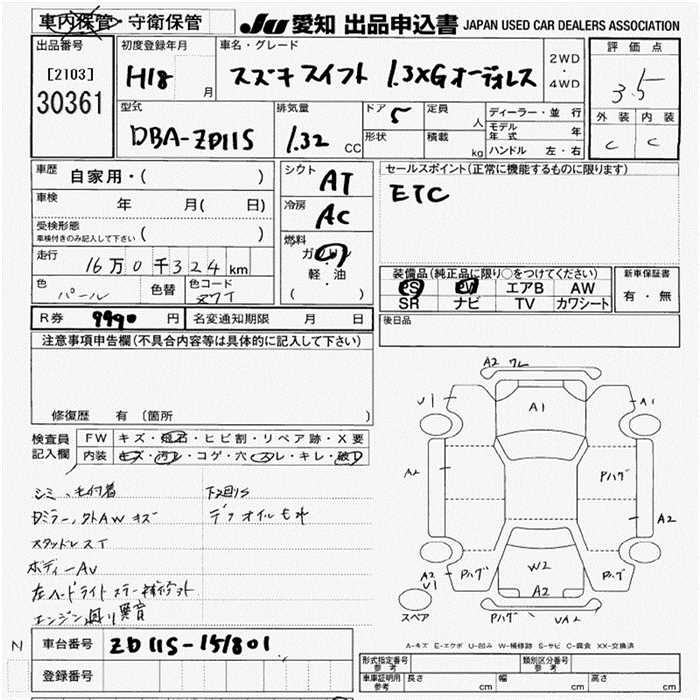 車内保管・守衛保管
JU 愛知 出品申込書 JAPAN USED CAR DEALERS ASSOCIATION
出品番号
[2103]
30361
初度登録年月
H18 月
車名・グレード
スズキ スイフト 1.3XGオーディオレス
2WD
・
4WD
評価点
3.5
外装 内装
C C
型式
DBA-ZD11S
排気量
1.32 CC
ドア 5
形状
定員 人
積載 kg
ディーラー・並行
モデル年式 年
ハンドル 左・右
車歴 自家用・( )
車検 年 月( 日)
受検形態
車検付きのみ記入して下さい ( )
走行 16万0千324 km
色 パール 色替 色コード
シフト AT
冷房 AC
燃料
ガソリン
・
軽・油
( )
セールスポイント(正常に機能するものに限ります)
ETC
装備品(純正品に限り○をつけてください)
PS PW エアB AW
SR ナビ TV カワシート
新車保証書
有・無
R券 9990 円 名変通知期限 月 日
後日品
注意事項申告欄(不具合内容等は具体的に記入して下さい)
修復歴 有 〔箇所 〕
検査員記入欄
FW キズ・飛石・ヒビ割・リペア跡・X要
内装 キズ・汚レ・コゲ・穴・スレ・キレ・破レ
シミ、毛付着
下回リS
Dミラー、外AWキズ
デフオイルモレ
スタッドレスT
ボディーAU
左ヘッドライトステー補修外
エンジン廻リ異音
A2 ワレ
U1
A1
A1
A2
Pハゲ
A2
A2
U1
Pハゲ
W2
A2
Pハゲ
Pハゲ
UA2
スペア
A-キズ E-エクボ U-凹み W-補修跡 S-サビ C-腐食 XX-交換済
N
車台番号 ZD11S-151801
登録番号
形式指定番号 参考
類別区分番号 参考
車庫証明用 参考 長さ cm 幅 cm 高さ cm